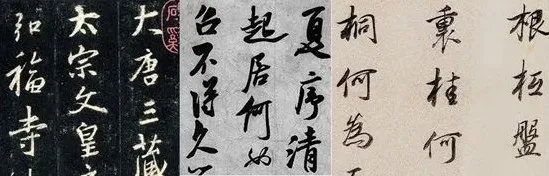 大唐三藏
太宗文皇
弘福寺
夏序清
起居何如
召不得久
根柢盤
裏桂何
桐何為